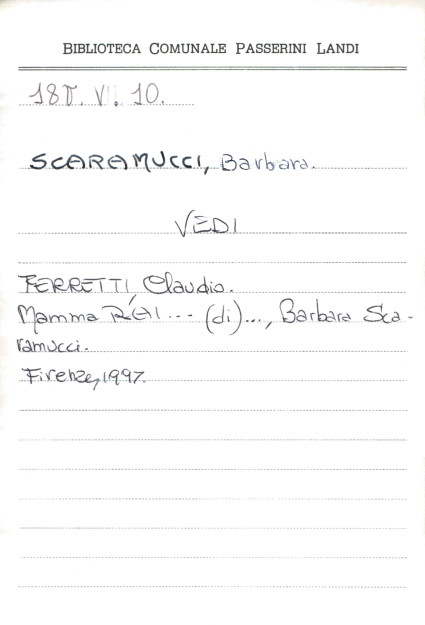 BIBLIOTECA COMUNALE PASSERINI LANDI
18D. VII. 10.
SCARAMUCCI, Barbara.
VEDI
FERRETTI, Claudio.
Mamma RAI... (di)..., Barbara Sca-
ramucci.
Firenze, 1997.